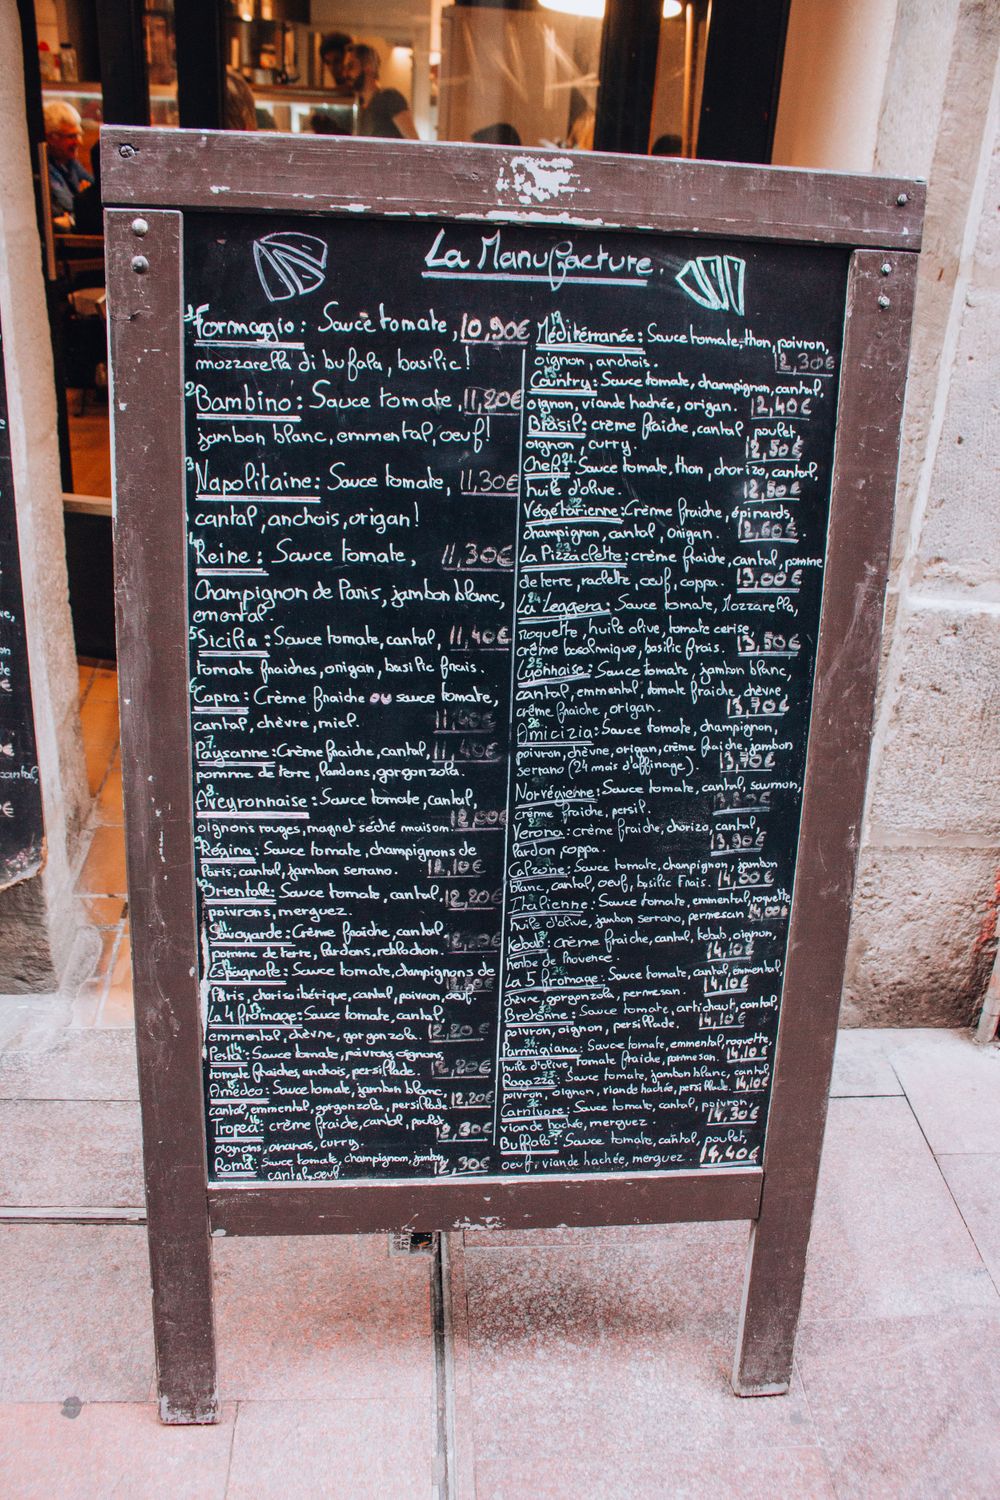 La Manufacture.
1 Formaggio : Sauce tomate, 10,90€
mozzarella di bufala, basilic !
2 Bambino : Sauce tomate, 11,20€
jambon blanc, emmental, oeuf !
3 Napolitaine : Sauce tomate, 11,30€
cantal, anchois, origan !
4 Reine : Sauce tomate, 11,30€
Champignon de Paris, jambon blanc,
emental.
5 Sicilia : Sauce tomate, cantal, 11,40€
tomate fraiches, origan, basilic frais.
6 Capra : Crème fraiche ou sauce tomate,
cantal, chèvre, miel.
7 Paysanne : Crème fraiche, cantal, 11,40€
pomme de terre, lardons, gorgonzola.
8 Aveyronnaise : Sauce tomate, cantal,
oignons rouges, magret séché maison. 12,00€
9 Régina : Sauce tomate, champignons de
Paris, cantal, jambon serrano. 12,10€
10 Orientale : Sauce tomate, cantal, 12,20€
poivrons, merguez.
11 Savoyarde : Crème fraiche, cantal,
pomme de terre, lardons, reblochon.
12 Espagnole : Sauce tomate, champignons de
Paris, choriso ibérique, cantal, poivron, oeuf.
La 4 fromage : Sauce tomate, cantal,
emmental, chèvre, gorgonzola. 12,20€
14 Pesta : Sauce tomate, poivrons, oignons,
tomate fraiches, anchois, persillade. 12,20€
15 Amédéo : Sauce tomate, jambon blanc, 12,20€
cantal, emmental, gorgonzola, persillade.
16 Tropea : crème fraiche, cantal, poulet,
oignons, ananas, curry. 12,30€
Roma : Sauce tomate, champignon, jambon,
cantal, oeuf 12,30€
Méditérranée : Sauce tomate, thon, poivron,
oignon, anchois. 12,30€
Country : Sauce tomate, champignon, cantal,
oignon, viande hachée, origan. 12,40€
Brasil : crème fraiche, cantal, poulet,
oignon, curry. 12,50€
21 Chef : Sauce tomate, thon, chorizo, cantal,
huile d'olive. 12,50€
Végétarienne : Crème fraiche, épinards,
champignon, cantal, origan. 12,60€
23 La Pizzaclette : crème fraiche, cantal, pomme
de terre, raclette, oeuf, coppa. 13,00€
24 La Leggera : Sauce tomate, Mozzarella,
roquette, huile olive, tomate cerise,
crème basalmique, basilic frais. 13,50€
25 Lyonnaise : Sauce tomate, jambon blanc,
cantal, emmental, tomate fraiche, chèvre,
crème fraiche, origan. 13,70€
26 Amicizia : Sauce tomate, champignon,
poivron, chèvre, origan, crème fraiche, jambon
serrano (24 mois d'affinage). 13,70€
Norvégienne : Sauce tomate, cantal, saumon,
crème fraiche, persil.
Verona : crème fraiche, chorizo, cantal,
lardon, coppa. 13,90€
Calzone : Sauce tomate, champignon, jambon
blanc, cantal, oeuf, basilic frais. 14,00€
Italienne : Sauce tomate, emmental, roquette,
huile d'olive, jambon serrano, permesan 14,00€
Kebab : Crème fraiche, cantal, kebab, oignon,
herbe de Provence. 14,10€
La 5 fromage : Sauce tomate, cantal, emmental,
chèvre, gorgonzola, permesan. 14,10€
Bretonne : Sauce tomate, artichaut, cantal,
poivron, oignon, persillade. 14,10€
34 Parmigiana : Sauce tomate, emmental, roquette,
huile d'olive, tomate fraiche, parmesan. 14,10€
35 Ragazza : Sauce tomate, jambon blanc, cantal
poivron, oignon, viande hachée, persillade. 14,10€
36 Carnivore : Sauce tomate, cantal, poivron,
viande hachée, merguez. 14,30€
37 Buffalo : Sauce tomate, cantal, poulet,
oeuf, viande hachée, merguez. 14,40€